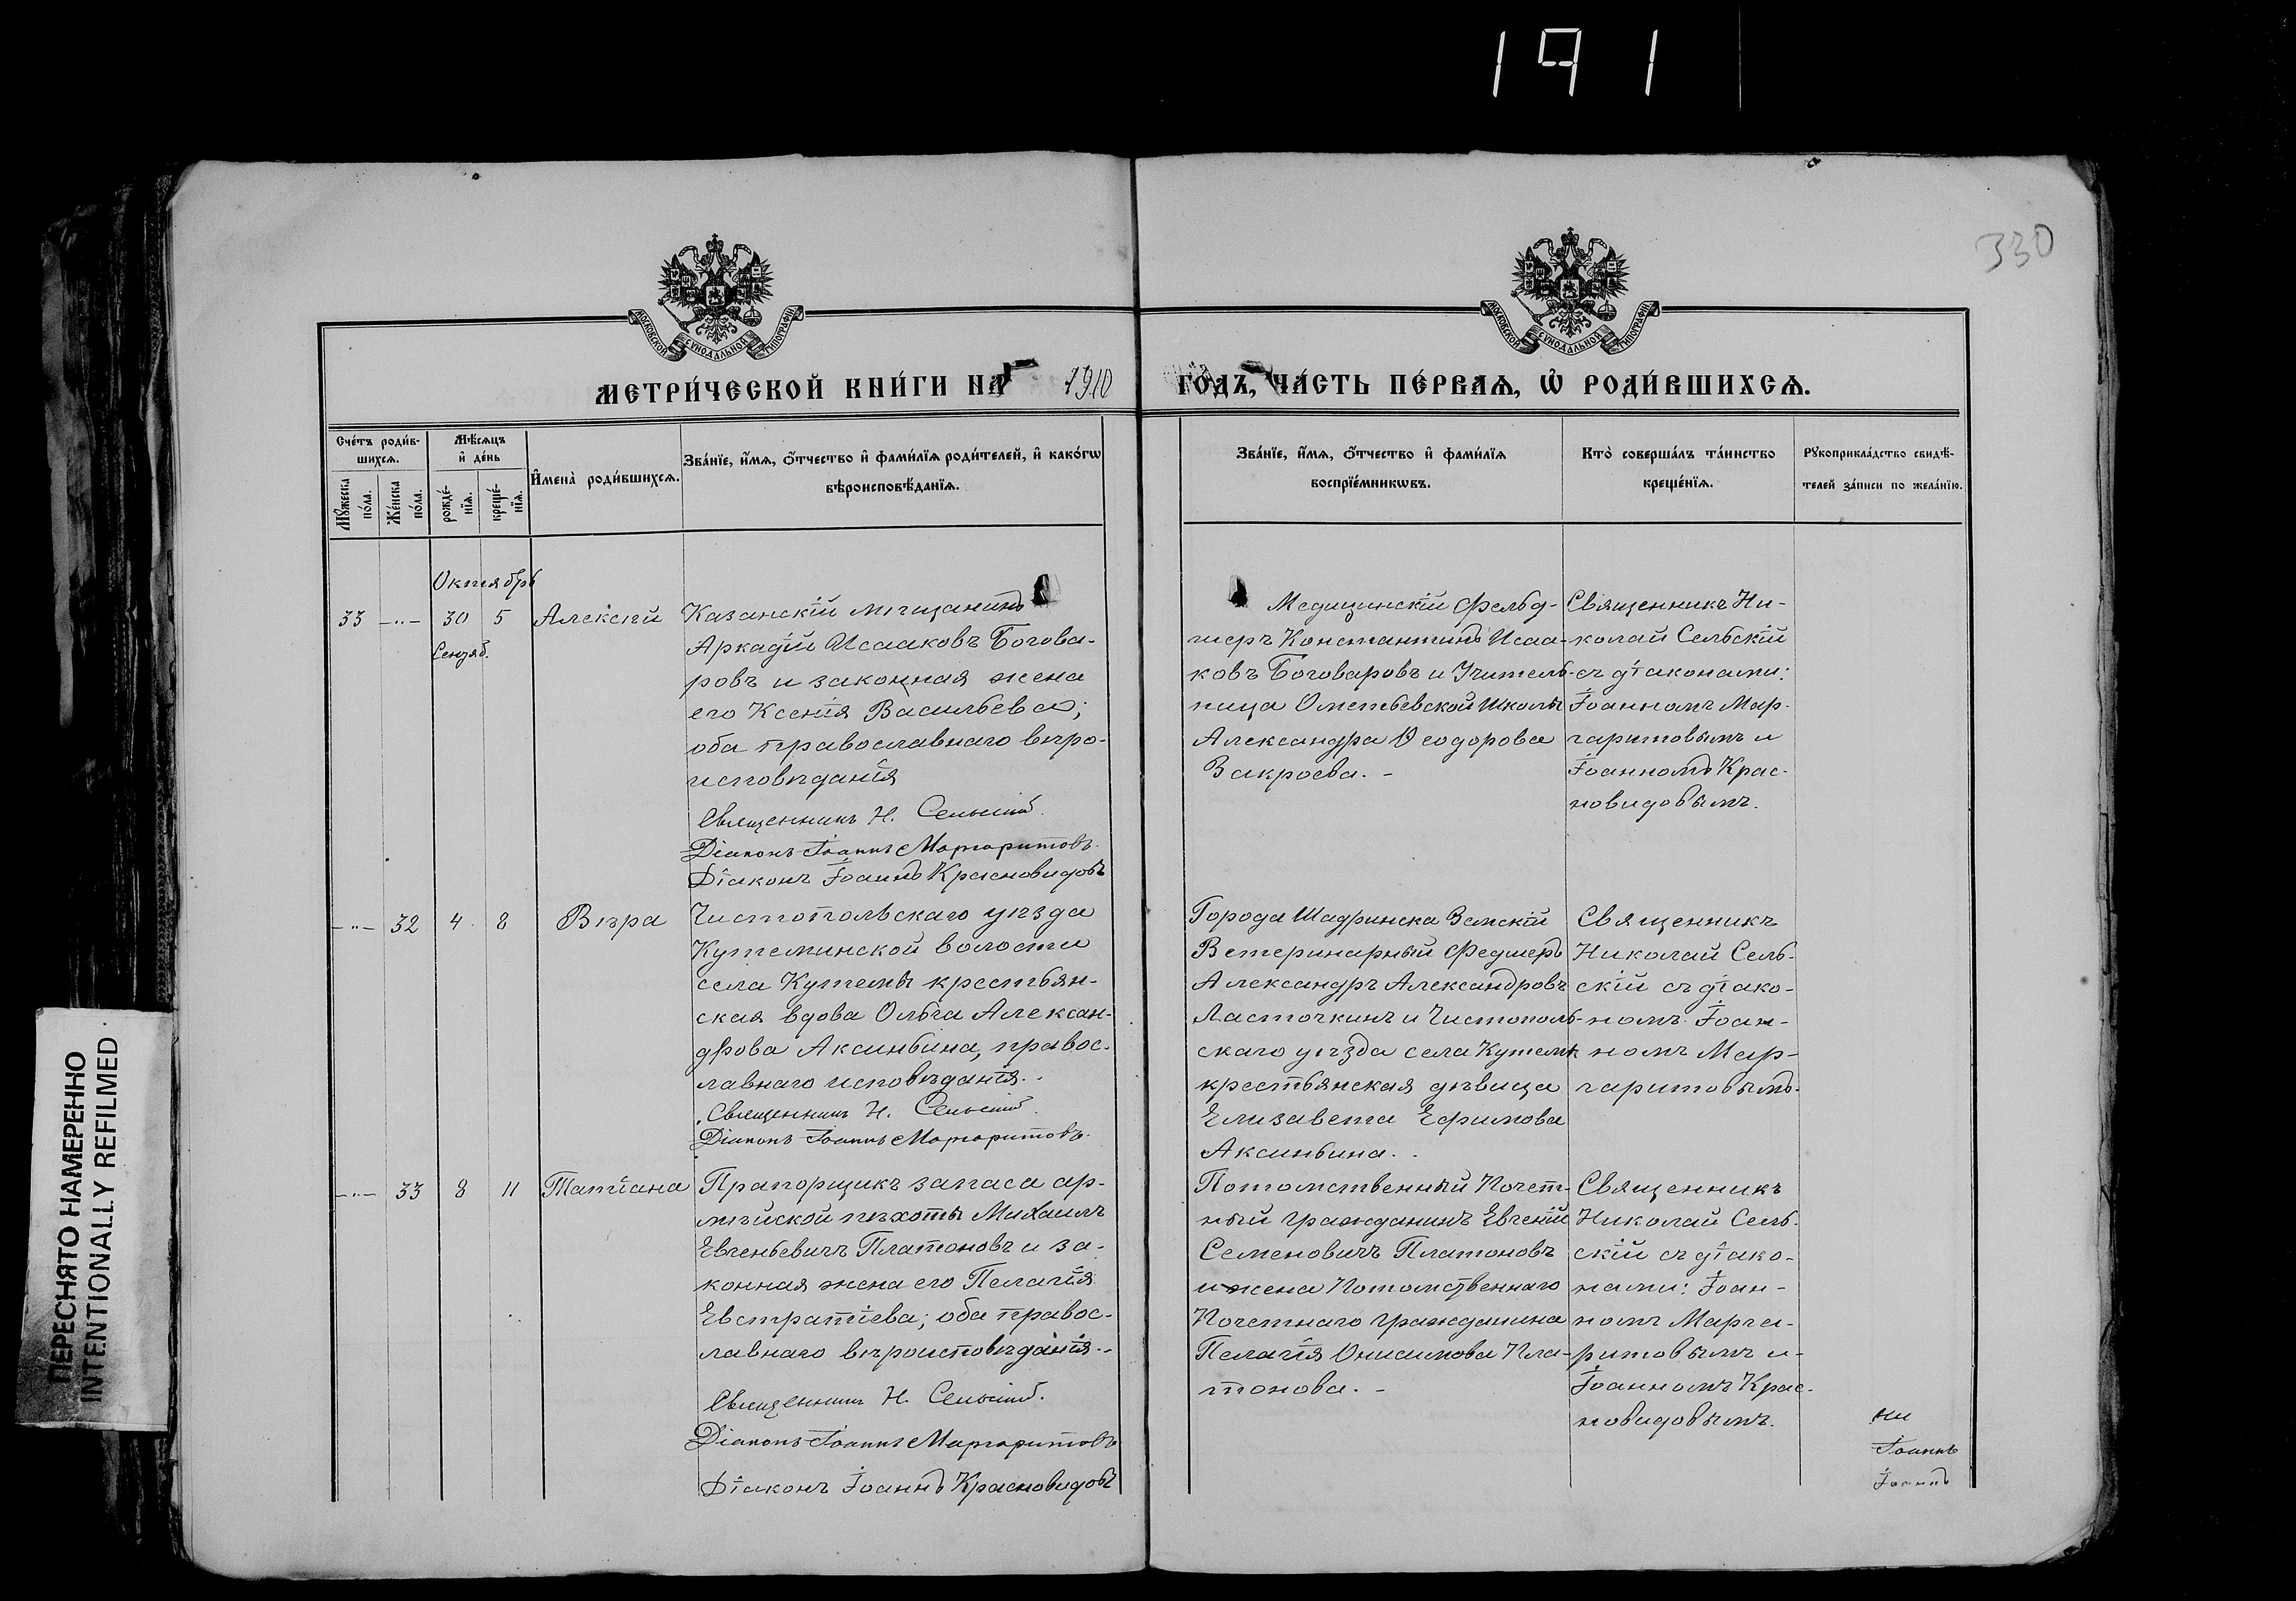 191
330
МОСКОВСКОЙ СѴНОДАЛЬНОЙ ТИПОГРАФІИ
МОСКОВСКОЙ СѴНОДАЛЬНОЙ ТИПОГРАФІИ
МЕТРИ́ЧЕСКОЙ КНИ́ГИ НА 1910 ГОДЪ, ЧА́СТЬ ПЕ́РВАѦ, Ѡ҆ РОДИ́ВШИХСѦ.
Сче́тъ роди́в-
шихсѧ.
Мꙋ́жеска по́ла.
Же́нска по́ла.
Мѣ́сѧцъ
и҆ де́нь
рожде́-
нїѧ.
креще́-
нїѧ.
И҆мена̀ роди́вшихсѧ.
Зва́нїе, и҆́мѧ, ѻ҆́тчество и҆ фами́лїѧ роди́телей, и҆ како́гѡ
вѣроисповѣ́данїѧ.
Зва́нїе, и҆́мѧ, ѻ҆́тчество и҆ фами́лїѧ
воспрїе́мникѡвъ.
Кто̀ соверша́лъ та́инство
креще́нїѧ.
Рꙋкоприкла́дство свидѣ́-
телей за́писи по жела́нїю.
Октябрь
33 -"- 30 5 Алексѣй
Сентяб.
Казанскій мѣщанинъ
Аркадій Исааковъ Богова-
ровъ и законная жена
его Ксенія Васильева;
оба православнаго вѣро-
исповѣданія
Священникъ Н. Сельскій.
Діаконъ Іоаннъ Маргаритовъ.
Діаконъ Іоаннъ Красновидовъ
Медицинскій фельд-
шеръ Константинъ Исаа-
ковъ Боговаровъ и Учитель-
ница Ометьевской школы
Александра Ѳеодорова
Вакроева. -
Священникъ Ни-
колай Сельскій
съ діаконами:
Іоанномъ Мар-
гаритовымъ и
Іоанномъ Крас-
новидовымъ.
-"- 32 4 8 Вѣра
Чистопольскаго уѣзда
Кутеминской волости
села Кутемы крестьян-
ская вдова Ольга Алексан-
дрова Аксиньина, правос-
лавнаго исповѣданія..
Священникъ Н. Сельскій.
Діаконъ Іоаннъ Маргаритовъ.
Города Шадринска Земскій
Ветеринарный Федшеръ
Александръ Александровъ
Ласточкинъ и Чистополь-
скаго уѣзда села Кутемы
крестьянская дѣвица
Елизавета Ефимова
Аксиньина. .
Священникъ
Николай Сель-
скій съ діако-
номъ Іоан-
номъ Мар-
гаритовымъ.
-"- 33 8 11 Татіана
Прапорщикъ запаса ар-
мейской пѣхоты Михаилъ
Евгеньевичъ Платоновъ и за-
конная жена его Пелагія
Евстратіева; оба правос-
лавнаго вѣроисповѣданія..
Священникъ Н. Сельскій.
Діаконъ Іоаннъ Маргаритовъ
Діаконъ Іоаннъ Красновидовъ
Потомственный Почет-
ный гражданинъ Евгеній
Семеновичъ Платоновъ
и жена Потомственнаго
Почетнаго гражданина
Пелагія Онисимова Пла-
тонова. -
Священникъ
Николай Сель-
скій съ діако-
нами: Іоан-
номъ Марга-
ритовымъ и
Іоанномъ Крас-
новидовымъ.
Іоаннъ
Іоаннъ
ПЕРЕСНЯТО НАМЕРЕННО
INTENTIONALLY REFILMED